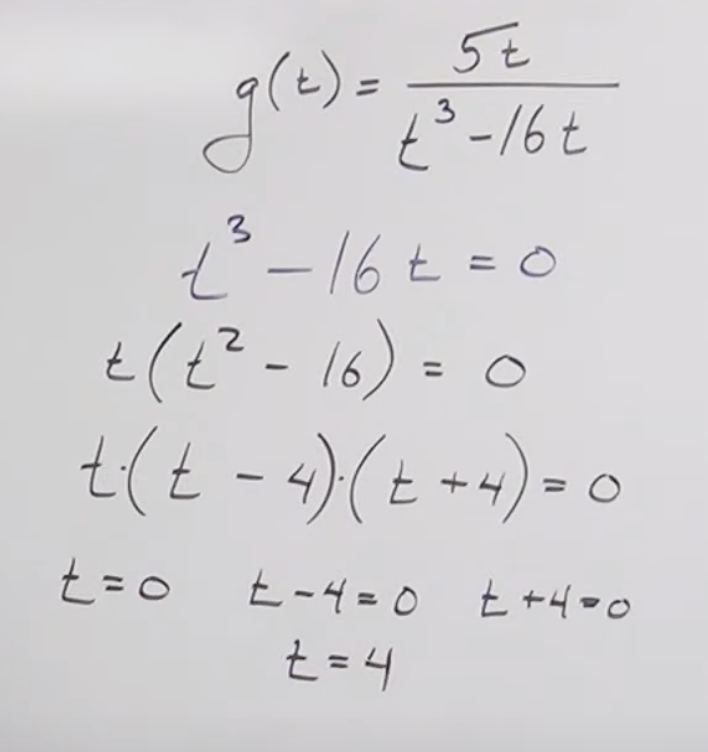 g(t) = 5t / t³ - 16t
t³ - 16t = 0
t(t² - 16) = 0
t·(t - 4)·(t + 4) = 0
t = 0 t - 4 = 0 t + 4 = 0
t = 4